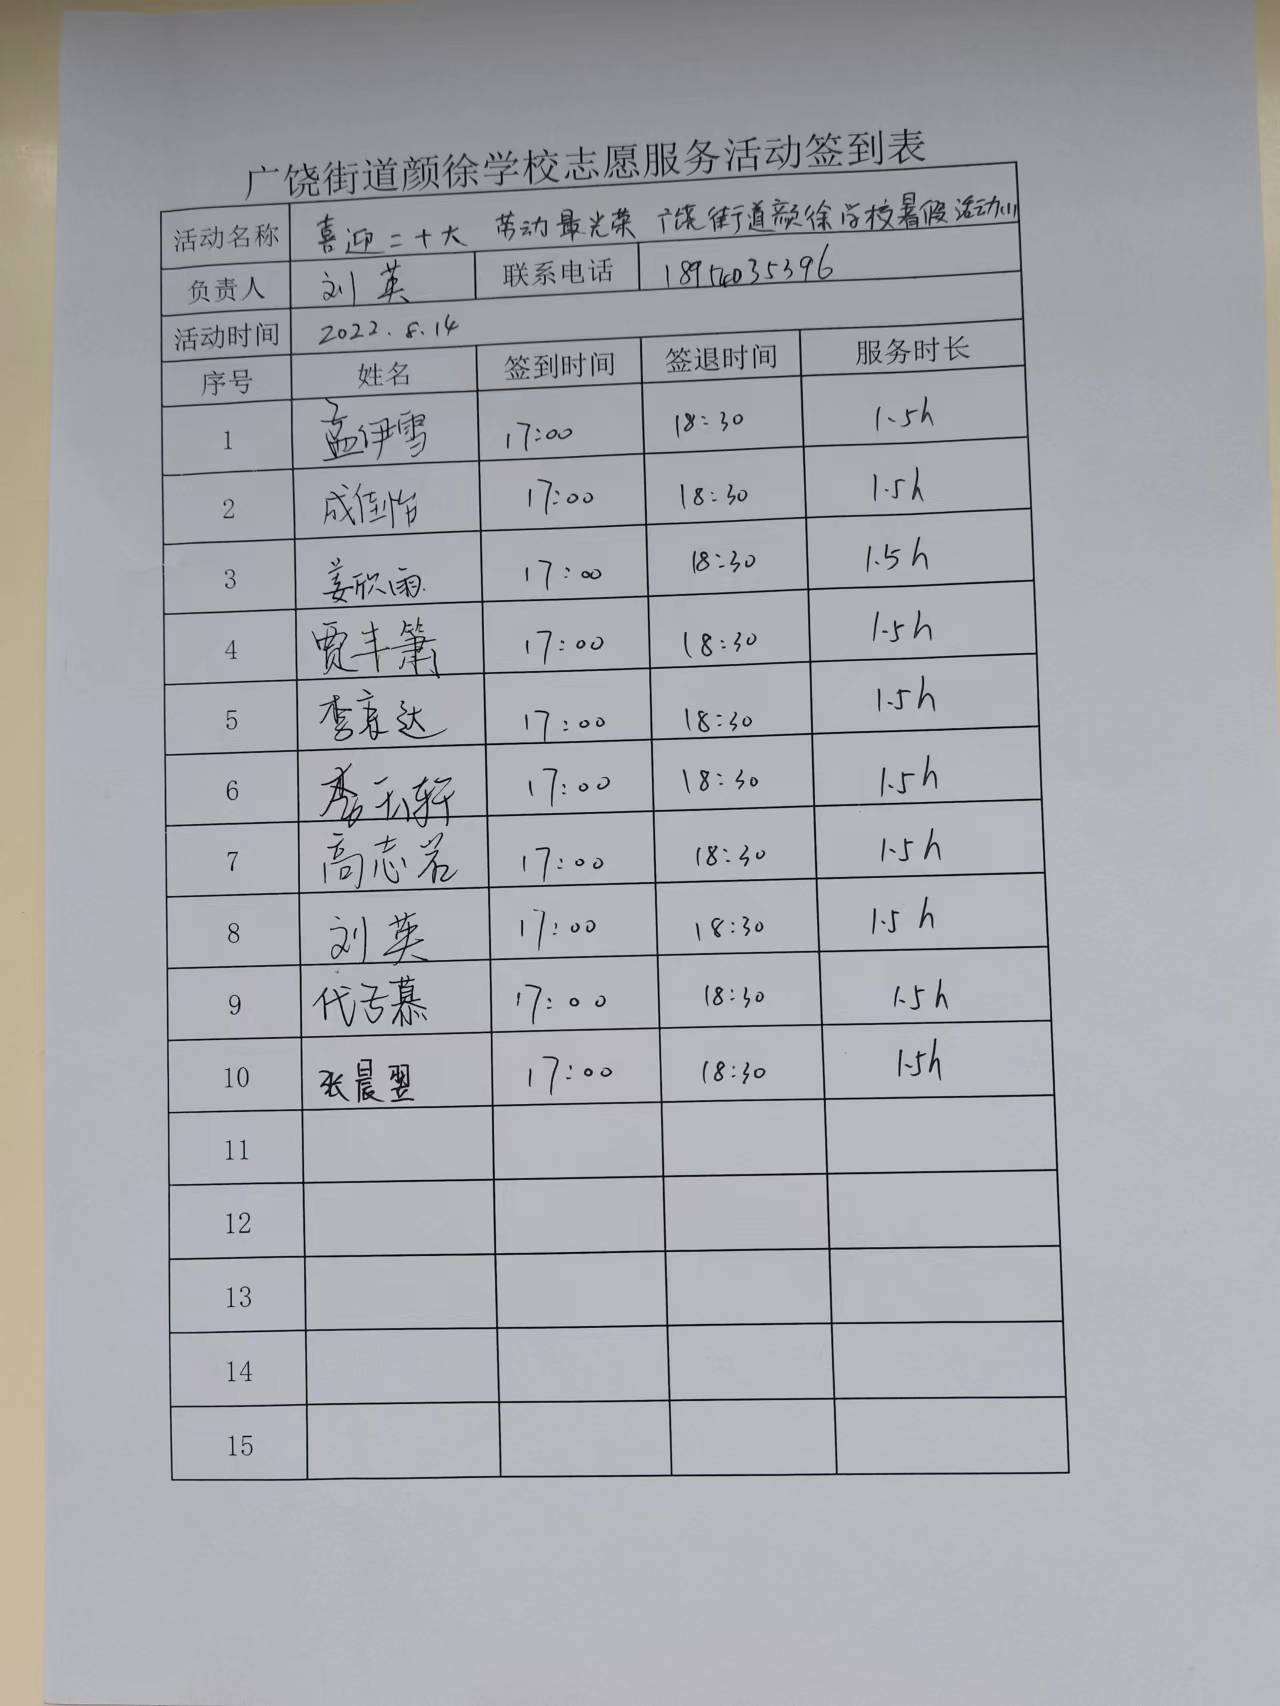 广饶街道颜徐学校志愿服务活动签到表
活动名称 喜迎二十大 劳动最光荣 广饶街道颜徐学校暑假活动(1)
负责人 刘英 联系电话 18954035396
活动时间 2022.8.14
序号 姓名 签到时间 签退时间 服务时长
1 孟伊雪 17:00 18:30 1.5h
2 成佳怡 17:00 18:30 1.5h
3 姜欣雨 17:00 18:30 1.5h
4 贾丰箫 17:00 18:30 1.5h
5 李 达 17:00 18:30 1.5h
6 李 轩 17:00 18:30 1.5h
7 高志若 17:00 18:30 1.5h
8 刘英 17:00 18:30 1.5h
9 代 慕 17:00 18:30 1.5h
10 张晨翌 17:00 18:30 1.5h
11
12
13
14
15